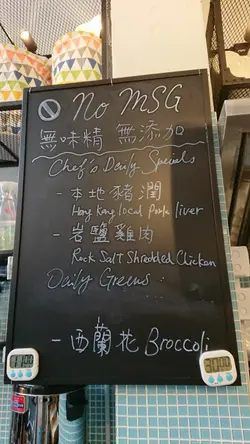 No MSG
無味精 無添加
Chef's Daily Specials
- 本地豬潤
Hong Kong local Pork liver
- 岩鹽雞肉
Rock Salt Shredded Chicken
Daily Greens:
- 西蘭花 Broccoli